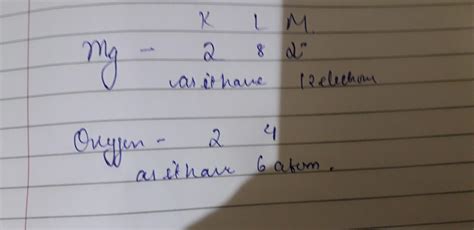 K L M
Mg - 2 8 2
as it have 12 electrons
Oxygen - 2 4
as it have 6 atom.